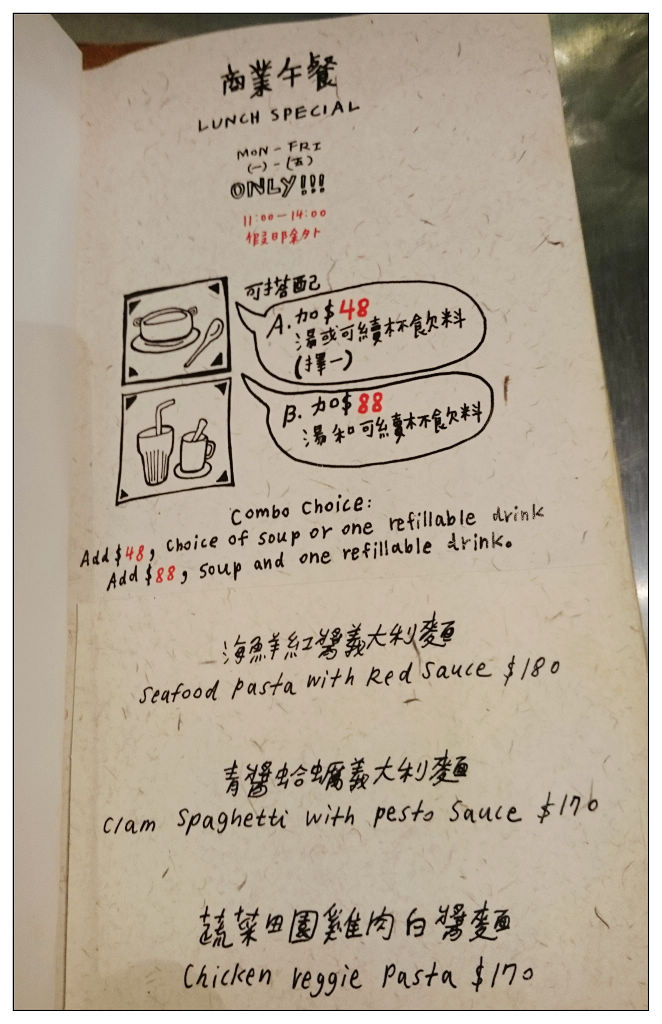 商業午餐
LUNCH SPECIAL
MON - FRI
(一) - (五)
ONLY!!!
11:00-14:00
假日除外
可搭配
A. 加$48
湯或可續杯飲料
(擇一)
B. 加$88
湯和可續杯飲料
Combo Choice:
Add $48, Choice of soup or one refillable drink
Add $88, soup and one refillable drink.
海鮮紅醬義大利麵
Seafood Pasta with Red Sauce $180
青醬蛤蠣義大利麵
Clam Spaghetti with pesto Sauce $170
蔬菜田園雞肉白醬麵
Chicken veggie Pasta $170